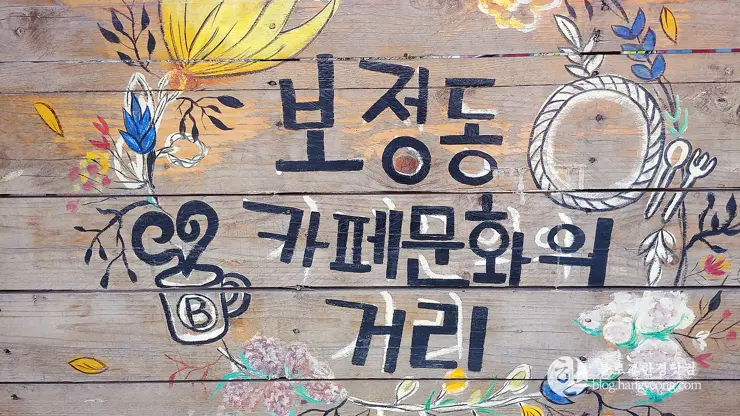 보정동
카페문화의
거리
B
blog.hangyeong.com